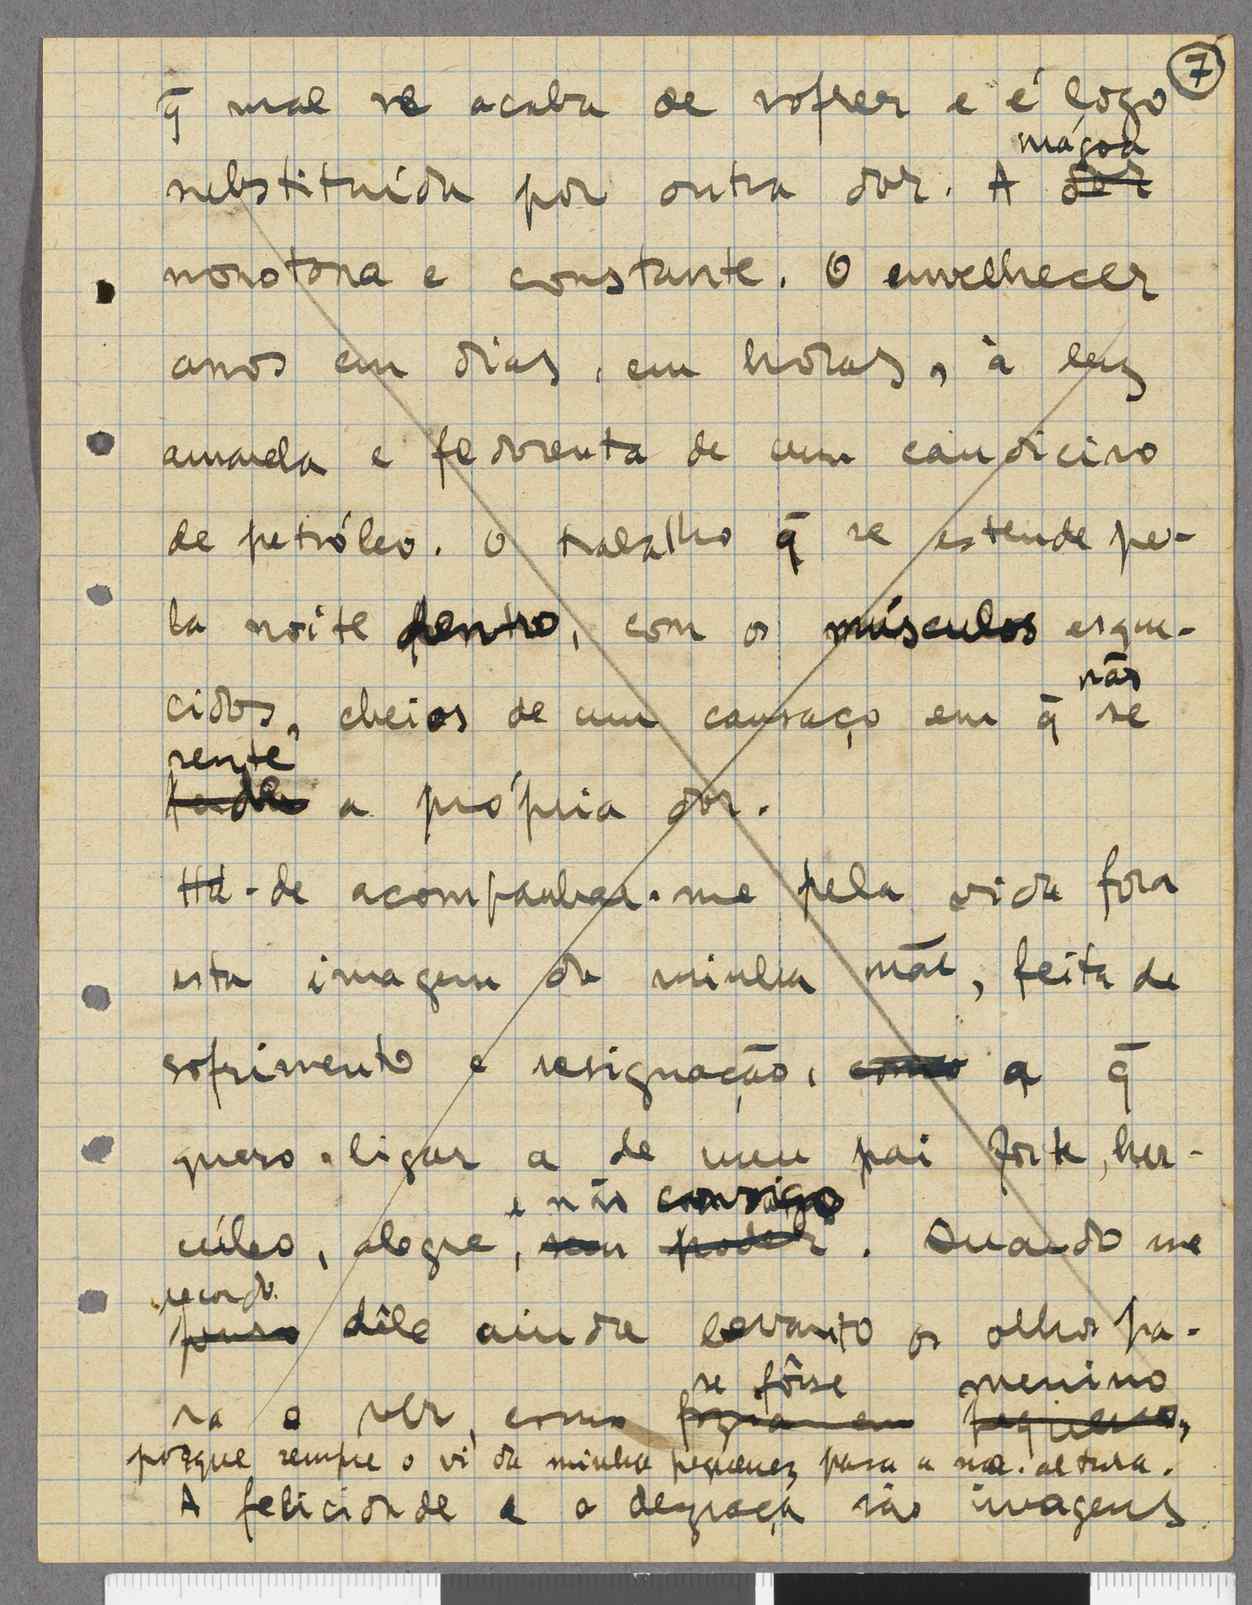 7
q̄ mal se acaba de sofrer e é logo
mágoa
substituída por outra dor. A dor
monotona e constante. O envelhecer
anos em dias, em horas, à luz
amarela e fedorenta de um candieiro
de petróleo. O trabalho q̄ se estende pe-
la noite dentro, com os músculos esque-
não
cidos, cheios de um cansaço em q̄ se
sente
a própria dor.
Há-de acompanhar-me pela vida fora
esta imagem da minha mãe, feita de
sofrimento e resignação, como a q̄
quero ligar a de meu pai forte, her-
e não consigo
cúleo, alegre, sem poder. Quando me
recordo
penso dêle ainda levanto os olhos pa-
se fôsse menino
ra o ver, como fazia em pequeno,
porque sempre o vi da minha pequenez para a sua altura.
A felicidade e a degraça são imagens